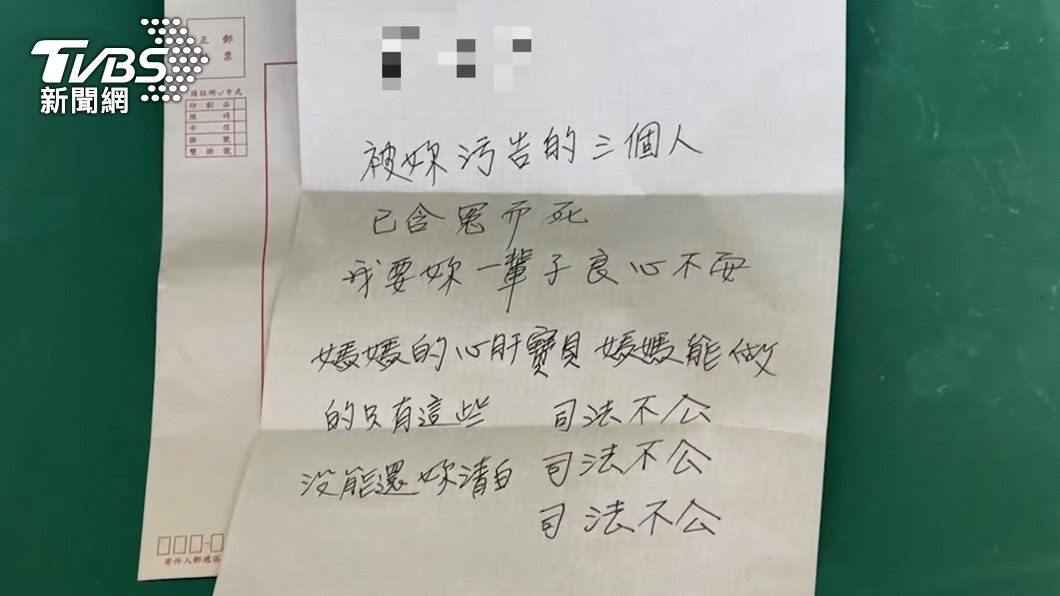 TVBS
新聞網
正 郵
票
請註明✓方式
印刷品
限時
平信
掛號
雙掛號
被妳污告的三個人
已含冤而死
我要妳一輩子良心不安
媽媽的心肝寶貝 媽媽能做
的只有這些 司法不公
没能還妳清白 司法不公
司法不公
寄件人郵遞區